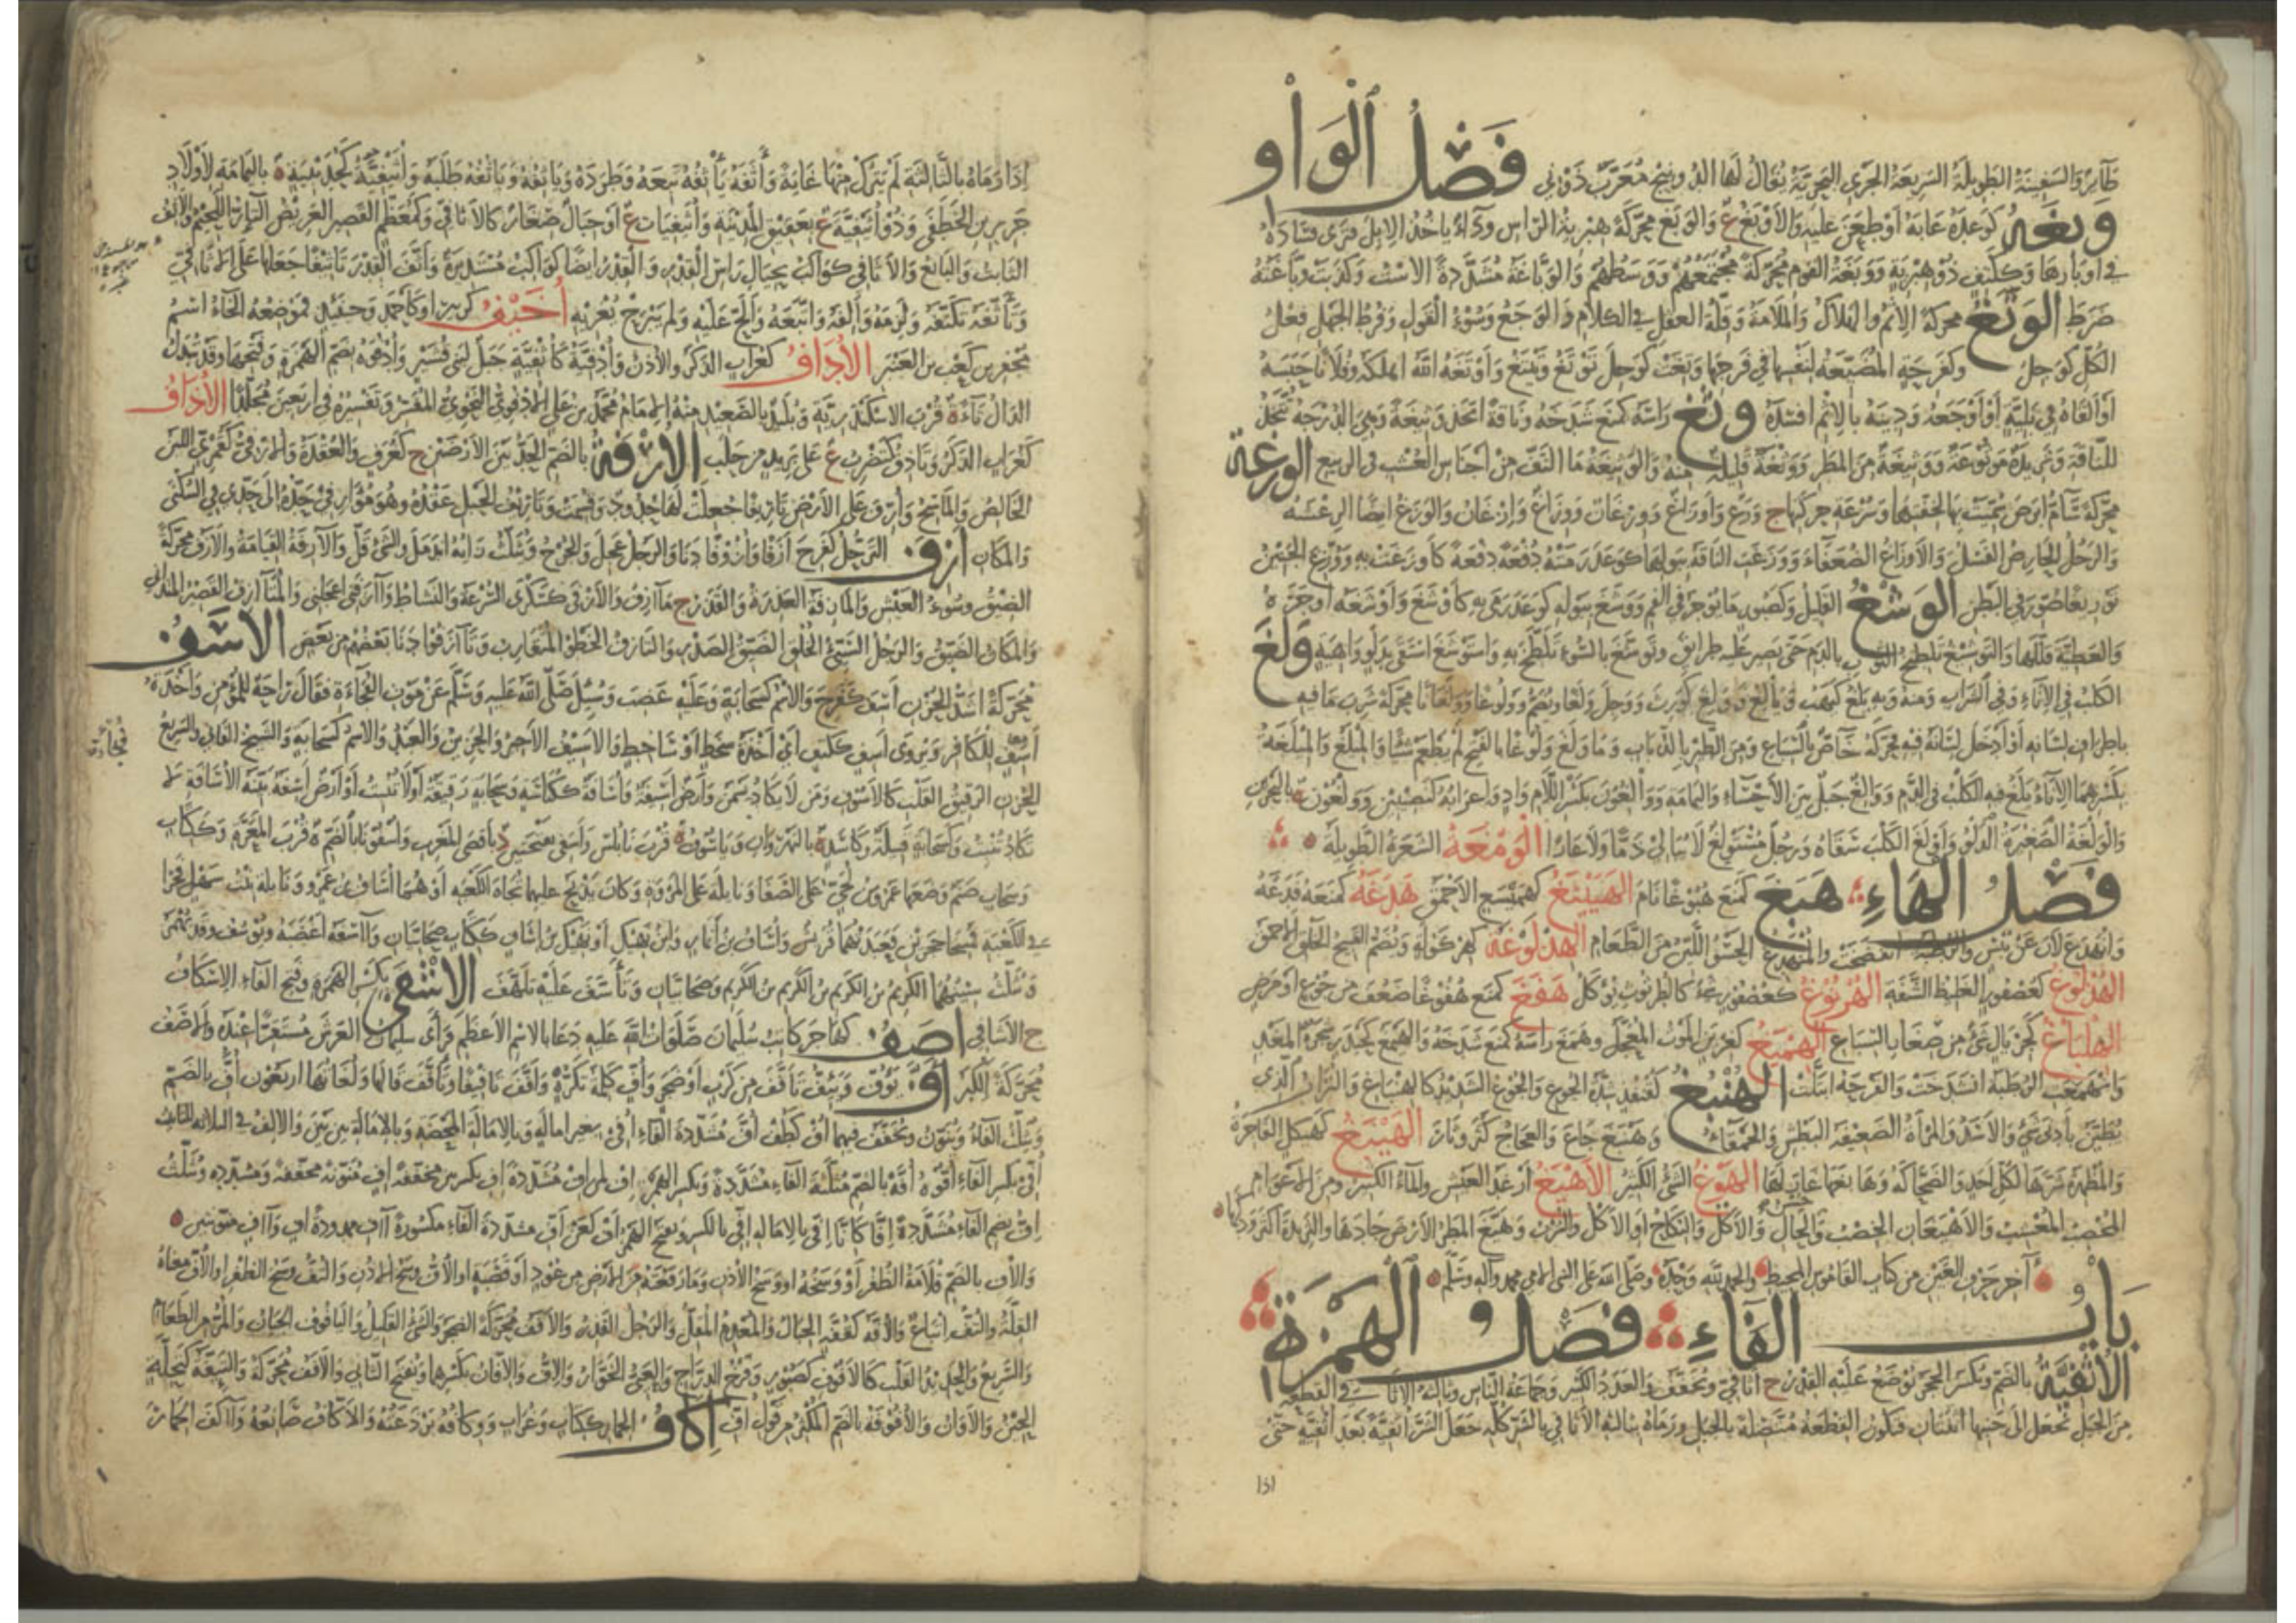 طائر والسفينة الطويلة السريعة الجري البحرية يقال لها الدونيج معرب دوني فصل الواو
وبغه كوعده عابه أو طعن عليه والأوبغ ع والوبغ محركة هبرية الرأس وداء يأخذ الإبل فترى فساده
في أوبارها وككتف ذو هبرية ووبغة القوم محركة مجتمعهم ووسطهم والوباغة مشددة الاست وكذبت وباغته
ضرط الوتغ محركة الإثم والهلاك والملامة وقلة العقل في الكلام والوجع وسوء القول وفرط الجهل فعل
الكل كوجل وكفرحة المضيعة لنفسها في فرجها وتغت كوجل توتغ وتيتغ وأوتغه الله أهلكه وفلانا حبسه
أو ألقاه في بلية أو أوجعه ودينه بالإثم أفسده وثغ رأسه كمنع شدخه وناقة اتخذ وثيغة وهي الدرجة تتخذ
للناقة وثريدة موثوغة ووثيغة من المطر ووثغة قليل منه والوثيغة ما التف من أجناس العشب في الربيع الوزغة
محركة سام أبرص سميت بها لخفتها وسرعة حركتها ج وزغ وأوزاغ ووزغان ووزاغ وإزغان والوزغ أيضا الرعشة
والرجل الحارض الفشل والأوزاغ الضعفاء ووزغت الناقة ببولها كوعد رمته دفعة دفعة كأوزغت به ووزغ الجنين
توزيغا صور في البطن الوشغ القليل وكصبور ما يوجر في الفم ووشغ ببوله كوعد رمى به كأوشغ وأوشغه أوجره
والعطية قللها والتوشيغ تلطيخ الثوب بالدم حتى يصير عليه طرائق وتوشغ بالسوء تلطخ به واستوشغ استقى بدلو واهية ولغ
الكلب في الإناء وفي الشراب ومنه وبه يلغ كيهب ويالغ وولغ كورث ووجل ولغا ويضم وولوغا وولغانا محركة شرب ما فيه
بأطراف لسانه أو أدخل لسانه فيه فحركه خاص بالسباع ومن الطير بالذباب وما ولغ ولوغا بالفتح لم يطعم شيئا والميلغ والميلغة
بكسرهما الإناء يلغ فيه الكلب في الدم ووالغ جبل بين الأحساء واليمامة ووالغون بكسر اللام واد وإعرابه كنصيبين وولغون ة بالبحرين
والولغة الصغيرة الدلو وأولغ الكلب سقاه ورجل مستولغ لا يبالي ذما ولا عارا الومغة الشعرة الطويلة
فصل الهاء هبغ كمنع هبوغا نام الهبينغ كهميسع الأحمق هدغه كمنعه فدغه
وانهدغ لان عن يبس والرطبة انفضخت والمنهدغ الحسو اللين من الطعام الهدلوغة كهركولة وتضم القبيح الخلق الأحمق
الهذلوغ كعصفور الغليظ الشفة الهرنوغ كعصفور شيء كالطرثوث يؤكل هفغ كمنع هفوغا ضعف من جوع أو مرض
الهلياغ كجريال شيء من صغار السباع الهميغ كغرين الموت المعجل وهمغ رأسه كمنع شدخه والهيمغ كحيدر شجرة المغد
وانهمغت الرطبة انشدخت والقرحة ابتلت الهنبغ كقنفذ شدة الجوع والجوع الشديد كالهنباغ والتراب الذي
يطير بأدنى شيء والأسد والمرأة الضعيفة البطش والحمقاء وهنبغ جاع والعجاج كثر وثار الهينغ كهيكل الفاجرة
والمظهرة سرها لكل أحد والضحاكة وهانغها غازلها الهوغ الشيء الكثير الأهيغ أرغد العيش والماء الكثير ومن الأعوام
المخصب المعشب والأهيغان الخصب وحسن الحال والأكل والنكاح أو الأكل والشرب وهيغ المطر الأرض جادها والثريدة أكثر ودكها
آخر حرف الغين من كتاب القاموس المحيط والحمد لله وحده وصلى الله على النبي الأمي محمد وآله وسلم
باب الفاء فصل الهمزة
الأثفية بالضم وبكسر الحجر توضع عليه القدر ج أثافي وتخفف والعدد الكثير وجماعة الناس وثالثة الأثافي القطعة
من الجبل تجعل إلى جنبها اثنتان فتكون القطعة متصلة بالجبل ورماه بثالثة الأثافي بالشر كله جعل الشر أثفية بعد أثفية حتى
131
إذا رماه بالثالثة لم يترك منها غاية وأثفه يأثفه تبعه وطرده ويأثفه طلبه وأثيفية كجديبية ة باليمامة لأولاد
جرير بن الخطفى وذو أثيفية ع بعقيق المدينة وأثيفيات ع أو جبال صغار كالأثافي وكمعظم القصير العريض التار الكثير اللحيم والآثف
الثابت والتابع والأثافي كواكب بحيال رأس القدر والقدر أيضا كواكب مستديرة وأثف القدر تأثيفا جعلها على الأثافي
وتأثفه تكنفه ولزمه وألفه واتبعه وألح عليه ولم يبرح يغريه أخيف كزبير أو كأحمد وحينئذ فموضعه الخاء اسم
مجفر بن كعب بن العنبر الأداف كغراب الذكر والأذن وأدفية كأثفية جبل لبني قشير وأدفوه بضم الهمزة وفتحها وقد تبدل
الدال تاء ة قرب الإسكندرية وبليد بالصعيد منه الإمام محمد بن علي الأدفوي النحوي المفسر وتفسيره في أربعين مجلدا الأذاف
كغراب الذكر وتأذف كتضرب ع على بريد من حلب الأرفة بالضم الحد بين الأرضين ج كغرف والعقدة والأرفي كقمري اللبن
الخالص والماسح وأرف على الأرض تأريفا جعلت لها حدود وقسمت وتأريف الحبل عقده وهو مؤارفي حده إلى حدي في السكنى
والمكان أزف الترحل كفرح أزفا وأزوفا دنا والرجل عجل والجرح وتثلث زايه اندمل والشيء قل والآزفة القيامة والأزف محركة
الضيق وسوء العيش والمآزفة العذرة والقذر ج مآزف والأزفى كسكرى السرعة والنشاط وآزفني أعجلني والمتآزف القصير المتداني
والمكان الضيق والرجل السيئ الخلق الضيق الصدر والتآزف الخطو المتقارب وتآزفوا دنا بعضهم من بعض الأسف
محركة أشد الحزن أسف كفرح والاسم كسحابة وعليه غضب وسئل صلى الله عليه وسلم عن موت الفجاءة فقال راحة للمؤمن وأخذة
أسف للكافر ويروى أسف ككتف أي أخذة سخط أو ساخط والأسيف الأجير والحزين والعبد والاسم كسحابة والشيخ الفاني والسريع
الحزن الرقيق القلب كالأسوف ومن لا يكاد يسمن وأرض أسيفة وأسافة ككناسة وسحابة رقيقة أو لا تنبت أو أرض أسفة بينة الأسافة لا
تكاد تنبت وكسحابة قبيلة وكأسد ة بالنهروان وياسوف ة قرب نابلس وأسفى بفتحتين د بأقصى المغرب وأسفونا بالضم ة قرب المعرة وككتاب
وسحاب صنم وضعها عمرو بن لحي على الصفا ونائلة على المروة وكان يذبح عليهما تجاه الكعبة أو هما إساف بن عمرو ونائلة بنت سهل فجرا
في الكعبة فمسخا حجرين فعبدتهما قريش وإساف بن أنمار وابن نهيك أو نهيك بن إساف ككتاب صحابيان وآسفه أغضبه ويوسف وقد يهمز
وتثلث سينهما الكريم بن الكريم بن الكريم بن الكريم وصحابيان وتأسف عليه تلهف الإشفى بكسر الهمزة وفتح الفاء الإسكاف
ج الأشافي آصف كهاجر كاتب سليمان صلوات الله عليه دعا بالاسم الأعظم فرأى سليمان العرش مستقرا عنده والأصف
محركة الكبر أف يؤف ويئف تأفف من كرب أو ضجر وأف كلمة تكره وأفف تأفيفا وتأفف قالها ولغاتها أربعون أف بالضم
وتثلث الفاء وتنون وتخفف فيهما أف كطف أف مشددة الفاء أفى بغير إمالة وبالإمالة المحضة وبالإمالة بين بين والألف في الثلاثة للتأنيث
أفي بكسر الفاء أفوه أفه بالضم مثلثة الفاء مشددة وبكسر الهمزة إف كمن إف مشددة إف بكسرتين مخففة إف منونة مخففة ومشددة وتثلث
إف بضم الفاء مشددة إفا كإنا إفى بالإمالة إفي بالكسر وبفتح الهمزة أف كعن أف مشددة الفاء مكسورة آف ممدودة آف وآف منونتين
والأف بالضم قلامة الظفر أو وسخه أو وسخ الأذن وما رفعته من الأرض من عود أو قصبة أو الأف وسخ الأذن والتف وسخ الظفر أو الأف معناه
القلة والتف إتباع والأفة كقفة الجبان والمعدم المقل والرجل القذر والأفف محركة الضجر والشيء القليل واليأفوف الجبان والمر من الطعام
والسريع والحديد القلب كالأفوف كصبور وفرخ الدراج والعيي الخوار والإف والإفان بكسرهما ويفتح الثاني والأفف محركة والتئفة كتحلة
الحين والأوان والأفوفة بالضم المكثر من قول أف إكاف الحمار ككتاب وغراب ووكافه برذعته والأكاف صانعه وآكف الحمار